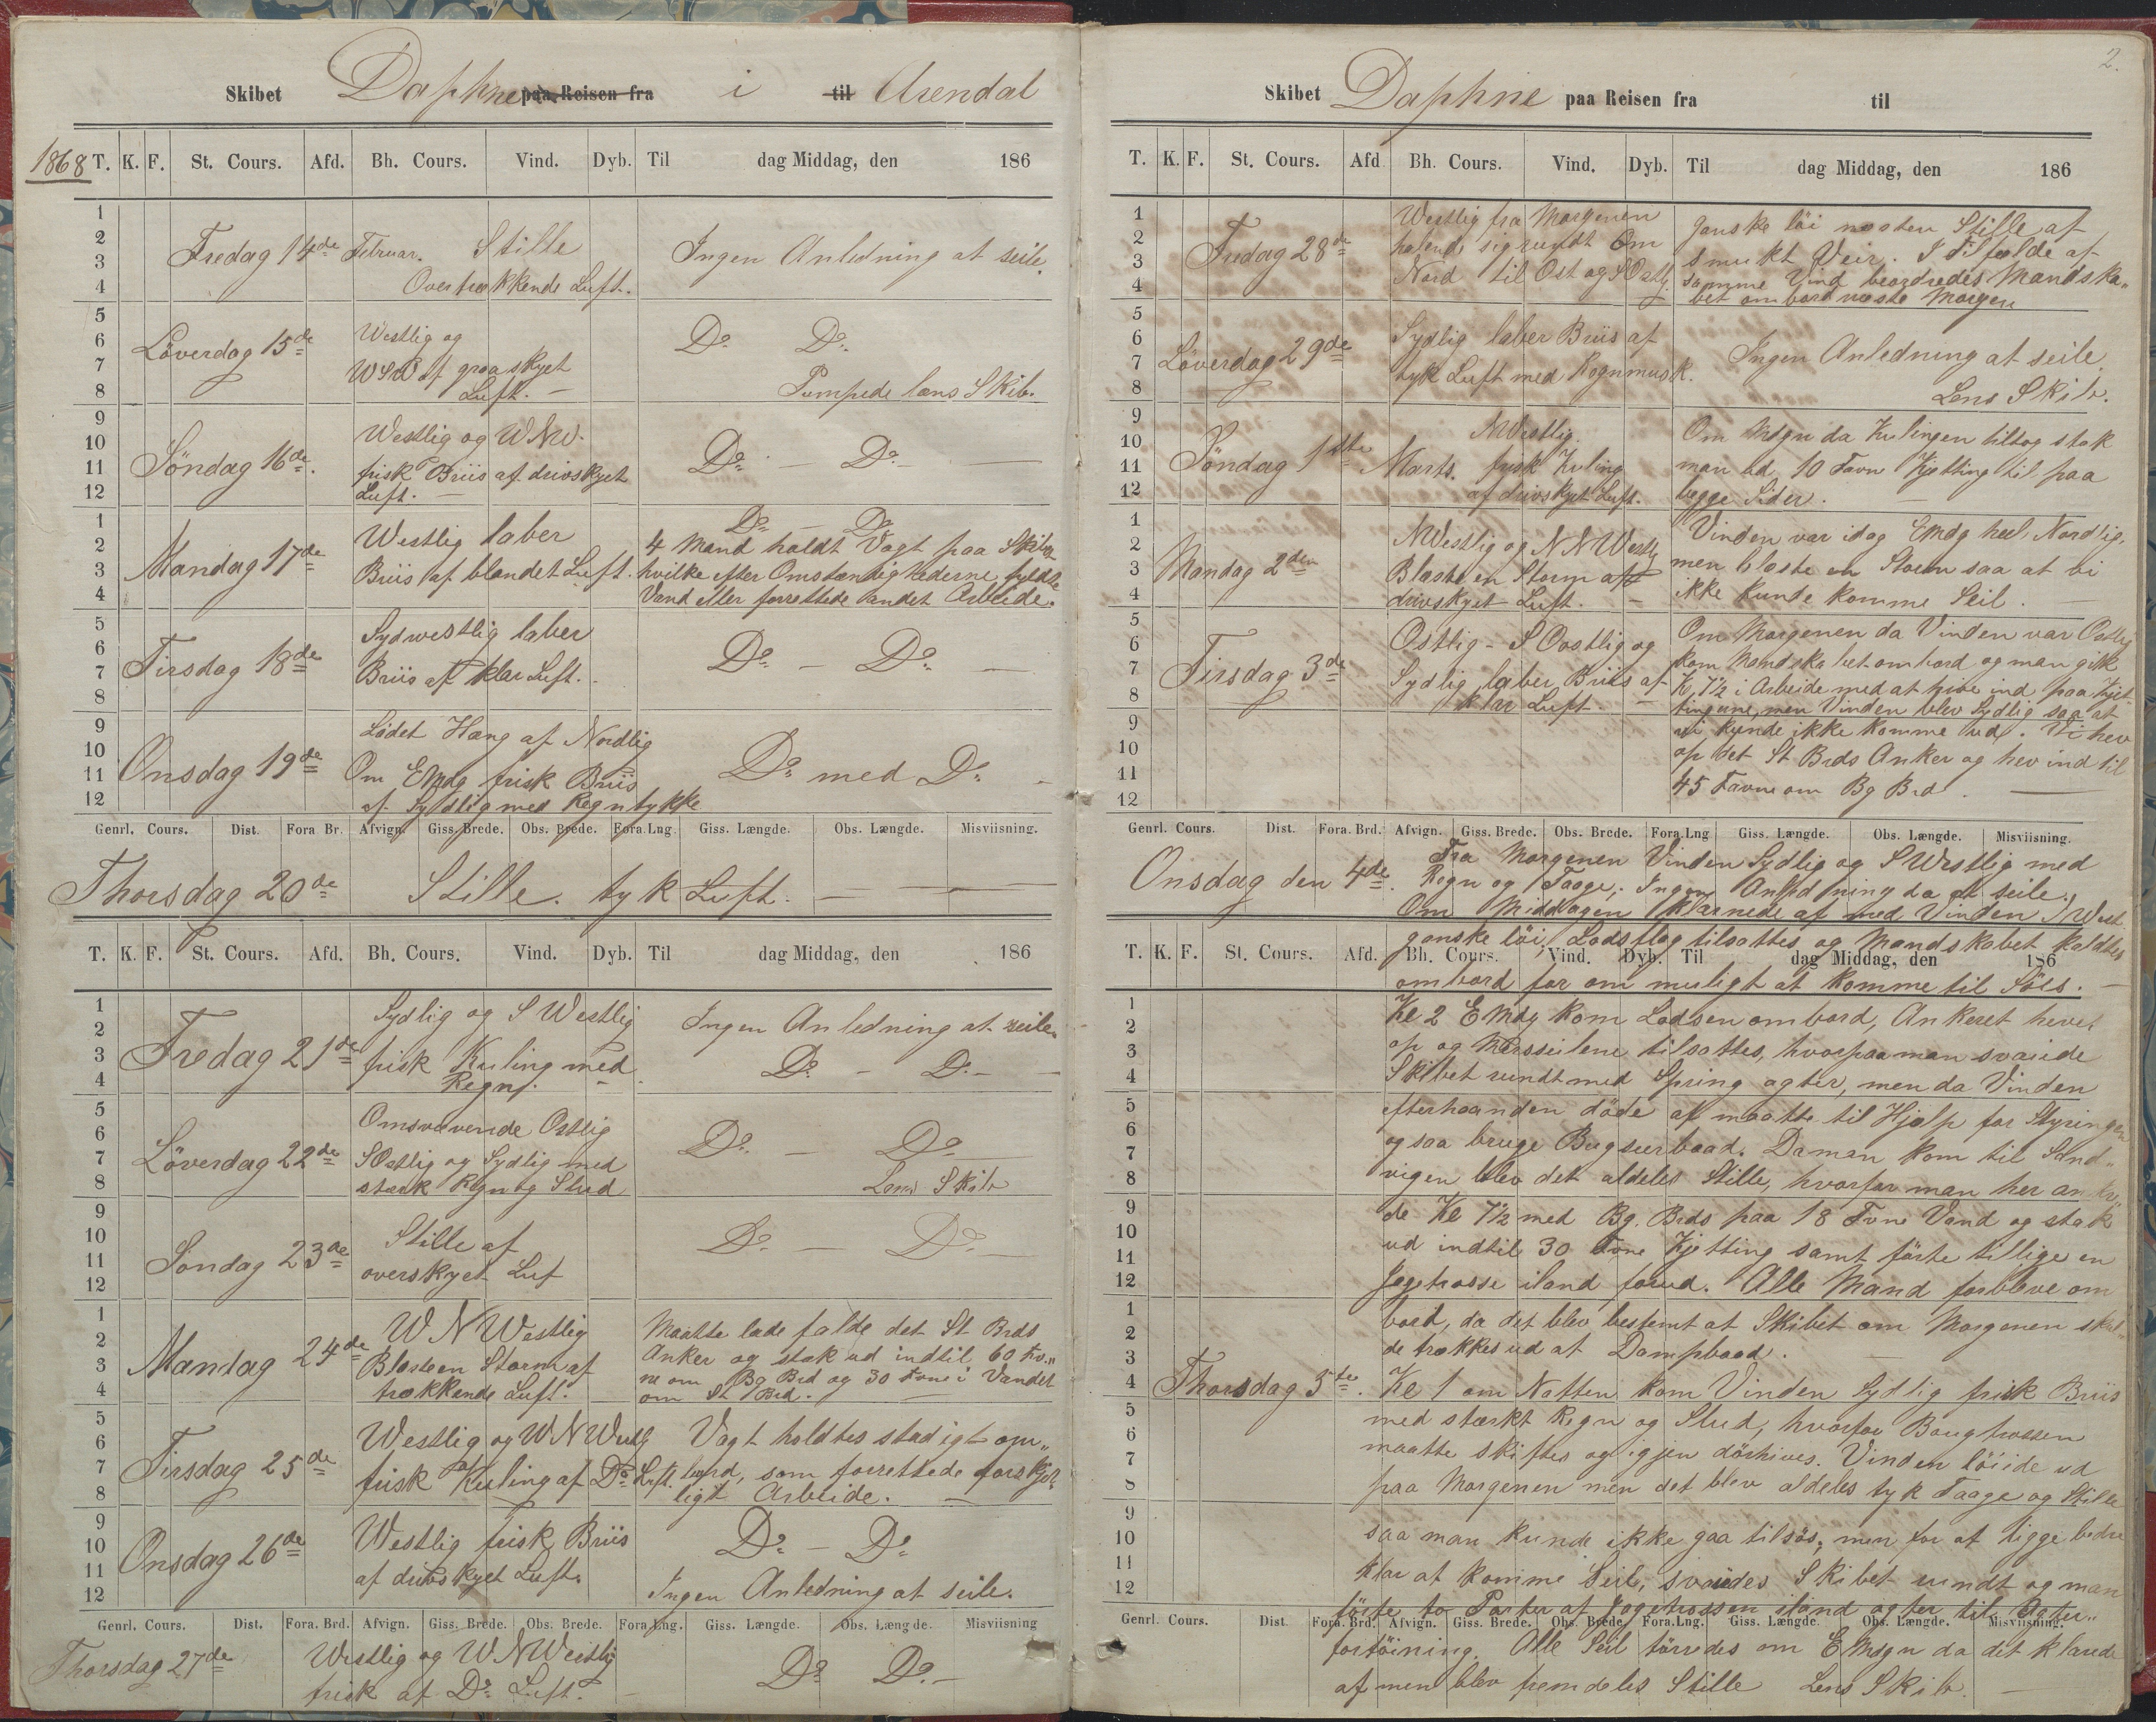 Skibet Daphne paa Reisen fra i til Arendal
1868 T. K. F. St. Cours. Afd. Bh. Cours. Vind. Dyb. Til dag Middag, den 186
1
2
3
4
Fredag 14de Februar. Stille
Overtrækkende Luft.
Ingen Anledning at seile.
5
6
7
8
Löverdag 15de
Westlig og
WSW af graaskyet
Luft. –
Do Do.
Pumpede læns Skib.
9
10
11
12
Söndag 16de.
Westlig og WNW.
frisk Briis af drivskyet
Luft. –
Do. – Do. –
1
2
3
4
Mandag 17de
Westlig laber
Briis af blandet Luft.
Do – Do
4 Mand holdt Vagt paa Skibet
hvilke efter Omstændighederne fyldte
Vand eller forrettede andet Arbeide.
5
6
7
8
Tirsdag 18de
Sydwestlig laber
Briis af klar Luft.
Do – Do. –
9
10
11
12
Onsdag 19de
Lödet Hang af Nordlig
Om EMdg frisk Briis
af Sydlig med Regntykke
Do. med Do. –
Genrl. Cours. Dist. Fora Br. Afvign. Giss. Brede. Obs. Brede. Fora.Lng. Giss. Længde. Obs. Længde. Misviisning.
Thorsdag 20de Stille. tyk Luft. –
T. K. F. St. Cours. Afd. Bh. Cours. Vind. Dyb. Til dag Middag, den 186
1
2
3
4
Fredag 21de
Sydlig og S Westlig
frisk Kuling med
Regn. –
Ingen Anledning at seile.
Do – Do. –
5
6
7
8
Löverdag 22de
Omsvævende Ostlig
SOstlig og Sydlig med
stærk Regn og Slud
Do – Do
Lens Skib
9
10
11
12
Söndag 23de
Stille af
overskyet Luf
Do. – Do.
1
2
3
4
Mandag 24de
W N Westlig
Blæste en Storm af
trækkende Luft.
Maatte lade falde det St Brds
Anker og stak ud indtil 60 Fv„
ne om Bg Brd og 30 Fvne i Vandet
om St Brd.
5
6
7
8
Tirsdag 25de
Westlig og WNWestlg
frisk Kuling af Do Luft.
Vagt holdtes stadigt om„
bord, som forrettede forskjel„
ligt Arbeide. –
9
10
11
12
Onsdag 26de
Westlig frisk Briis
af drivskyet Luft.
Do – Do
Ingen Anledning at seile.
Genrl. Cours. Dist. Fora. Brd. Afvign. Giss. Brede. Obs. Brede. Fora.Lng. Giss. Længde. Obs. Længde. Misviisning
Thorsdag 27de
Westlig og WNWestlig
frisk af Do Luft. –
Do Do. –
2.
Skibet Daphne paa Reisen fra til
T. K. F. St. Cours. Afd Bh. Cours. Vind. Dyb. Til dag Middag, den 186
1
2
3
4
Fredag 28de
Westlig fra Morgenen
halende sig rundt Om
Nord til Ost og SOstlg.
Ganske löi næsten Stille af
smukt Veir. I Tilfælde af
samme Vind beordredes Mandska„
bet ombord næste Morgen
5
6
7
8
Löverdag 29de
Sydlig laber Briis af
tyk Luft med Regnmusk.
Ingen Anledning at seile.
Lens Skib.
9
10
11
12
Söndag 1ste Marts.
NWestlig.
frisk Kuling
af drivskyet Luft.
Om Mdgn da Kulingen tiltog stak
man ud 10 Favn Kjetting til paa
begge Sider. –
1
2
3
4
Mandag 2den
NWestlig og NNWestlg
Blæste en Storm af
drivskyet Luft. –
Vinden var idag EMdg heel Nordlig,
men blæste en Storm saa at vi
ikke kunde komme Seil. –
5
6
7
8
9
10
11
12
Tirsdag 3de
Ostlig – SOostlig og
Sydlig laber Briis af
klar Luft. –
Om Morgenen da Vinden var Ostlig
kom Mandskabet ombord og man gik
Kl 7½ i Arbeide med at hive ind paa Kjet„
tingerne, men Vinden blev Sydlig saa at
vi kunde ikke komme ud. Vi hev
op det St Brds Anker og hev ind til
45 Favne om Bg Brd. –
Genrl. Cours. Dist. Fora. Brd. Afvign. Giss. Brede. Obs. Brede. Fora.Lng Giss. Længde. Obs. Længde. Misviisning.
Onsdag den 4de.
Fra Morgenen Vinden Sydlig og S Westlig med
Regn og Taage; Ingen Anledning da at seile.
Om Middagen klarnede af med Vinden S West
ganske löi, Lodsflag tilsattes og Mandskabet kaldtes
T. K. F. St. Cours. Afd. Bh. Cours. Vind. Dyb. Til dag Middag, den 186
ombord for om muligt at komme til Söes. –
1
2
3
4
5
6
7
8
9
10
11
12
Kl 2 EMdg kom Lodsen ombord, Ankeret hevet
op og Mersseilene tilsattes, hvorpaa man svaiede
Skibet rundt med Spring agter, men da Vinden
efterhaanden döde af maatte til Hjælp for Styringen
ogsaa bruge Bugseerbaad. Da man kom til Sand„
vigen blev det aldeles Stille, hvorfor man her ankr„
de Kl 7½ med Bg. Brds paa 18 Fvne Vand og stak
ud indtil 30 Fvne Kjetting samt förte tillige en
Jagetrosse iland forud. Alle Mand forbleve om
bord, da det blev bestemt at Skibet om Morgenen skul„
de trækkes ud af Dampbaad.
1
2
3
4
5
6
7
8
9
10
11
12
Thorsdag 5te.
Kl 1 om Natten kom Vinden Sydlig frisk Briis
med stærkt Regn og Slud, hvorfor Bougtrossen
maatte skiftes og igjen
Vinden löiede ud
paa Morgenen men det blev aldeles tyk Taage og Stille
saa man kunde ikke gaa tilsös, men for at ligge bedre
klar at komme Seil, svaiedes Skibet rundt og man
förte to Parter af Jagetrossen iland agter til Agter„
Genrl. Cours. Dist. Fora. Brd. Afvign. Giss. Brede. Obs. Brede. Fora.Lng. Giss. Længde. Obs. Længde. Misviisning.
fortöining. Alle Seil törredes om EMdgn da det klarede
af men blev fremdeles Stille Lens Skib. –